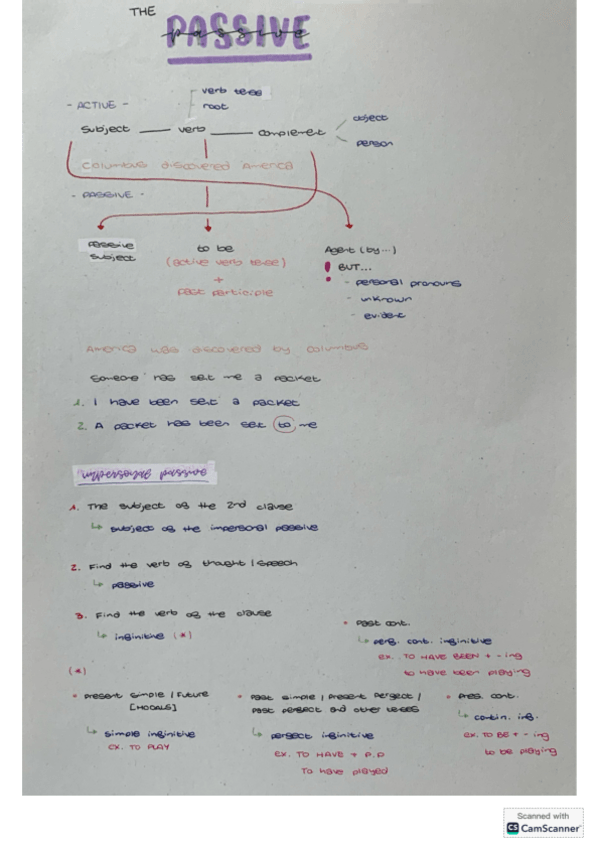 THE
PASSIVE
passive
- ACTIVE -
verb tense
root
subject verb complement
object
person
Columbus discovered America
- PASSIVE -
passive
subject
to be
(active verb tense)
+
past participle
Agent (by...)
! BUT...
- personal pronouns
- unknown
- evident
America was discovered by Columbus
Someone has sent me a packet
1. I have been sent a packet
2. A packet has been sent to me
impersonal passive
1. The subject of the 2nd clause
↳ subject of the impersonal passive
2. Find the verb of thought / speech
↳ passive
3. Find the verb of the clause
↳ infinitive (*)
• Past cont.
↳ perf. cont. infinitive
ex. TO HAVE BEEN + -ing
to have been playing
(*)
• present simple / Future
[MODALS]
↳ simple infinitive
ex. TO PLAY
• Past simple / present perfect /
Past perfect and other tenses
↳ perfect infinitive
ex. TO HAVE + P.P
To have played
• pres. cont.
↳ contin. inf.
ex. TO BE + -ing
to be playing
Scanned with
CS CamScanner